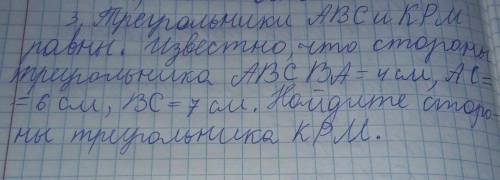 3, Треугольники ABC и КРМ
равны. Известно, что стороны
треугольника ABC BA = 4 см, AC =
= 6 см, BC = 7 см. Найдите сторо-
ны треугольника КРМ.